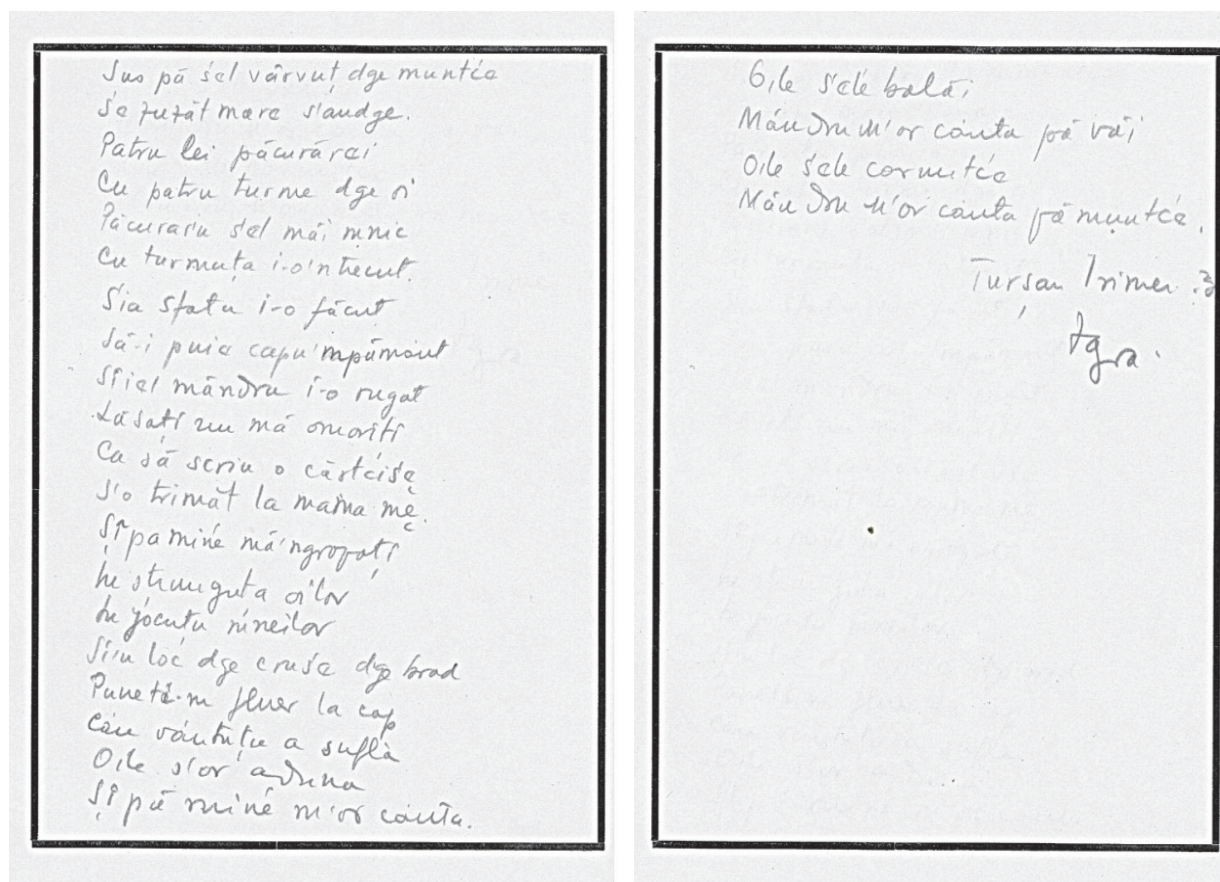 Sus pă śel vârvuț dge muntće
Śe zuzăt mare s'audge.
Patru lei păcurărei
Cu patru turme dge oi
Păcuraru śel măi mnic
Cu turmuța i-o'ntrecut.
Śia sfatu i-o făcut
Să-i puie capu'mpământ
Și iel mândru i-o rugat
Lăsați nu mă omorîți
Ca să scriu o cărtćiśe
S'o trimăt la mama mę.
Șî pa mińe mă'ngropați
În strunguța oilor
În jocuțu ńińeilor
Șî'n loć dge cruśe dge brad
Puńeță-m fluer la cap
Cân vântuțu a suflà
Oile s'or aduna
Șî pă mińe m'or cânta.
Oile śele balăi
Mândru m'or cânta pă văi
Oile śele cornutće
Mândru m'or cânta pă muntće.
Turșan Irimei